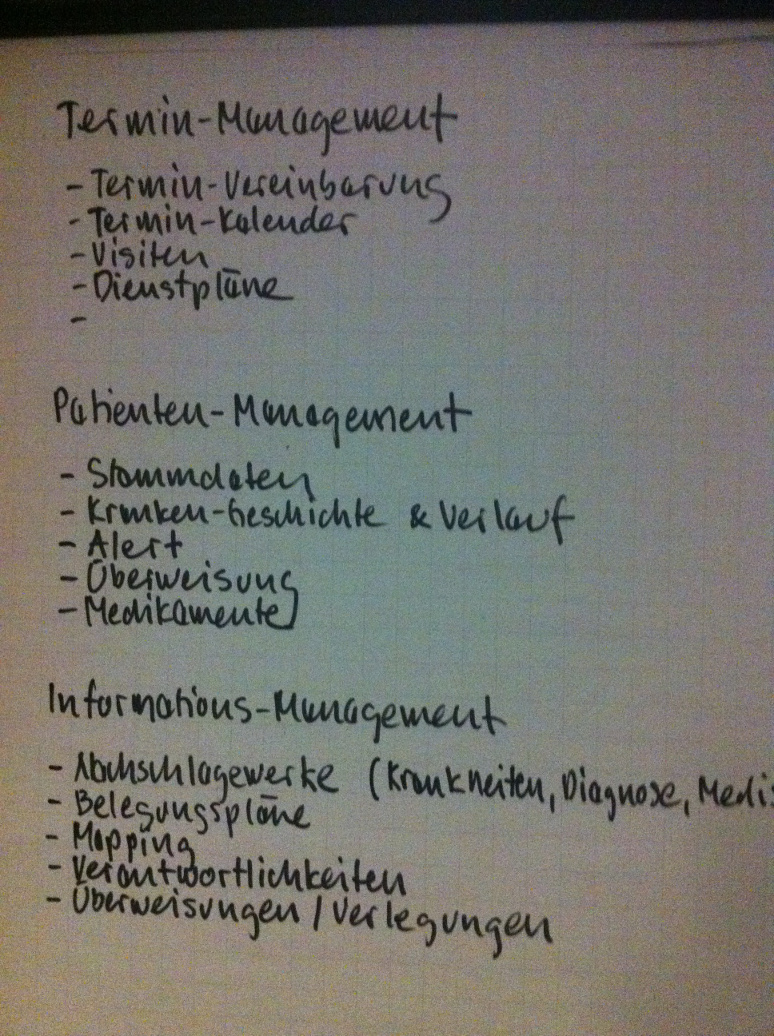 Termin-Management
- Termin-Vereinbarung
- Termin-Kalender
- Visiten
- Dienstpläne
-
Patienten-Management
- Stammdaten
- Kranken-Geschichte & Verlauf
- Alert
- Überweisung
- Medikamente
Informations-Management
- Nachschlagewerke (Krankheiten, Diagnose, Medi
- Belegungspläne
- Mapping
- Verantwortlichkeiten
- Überweisungen / Verlegungen